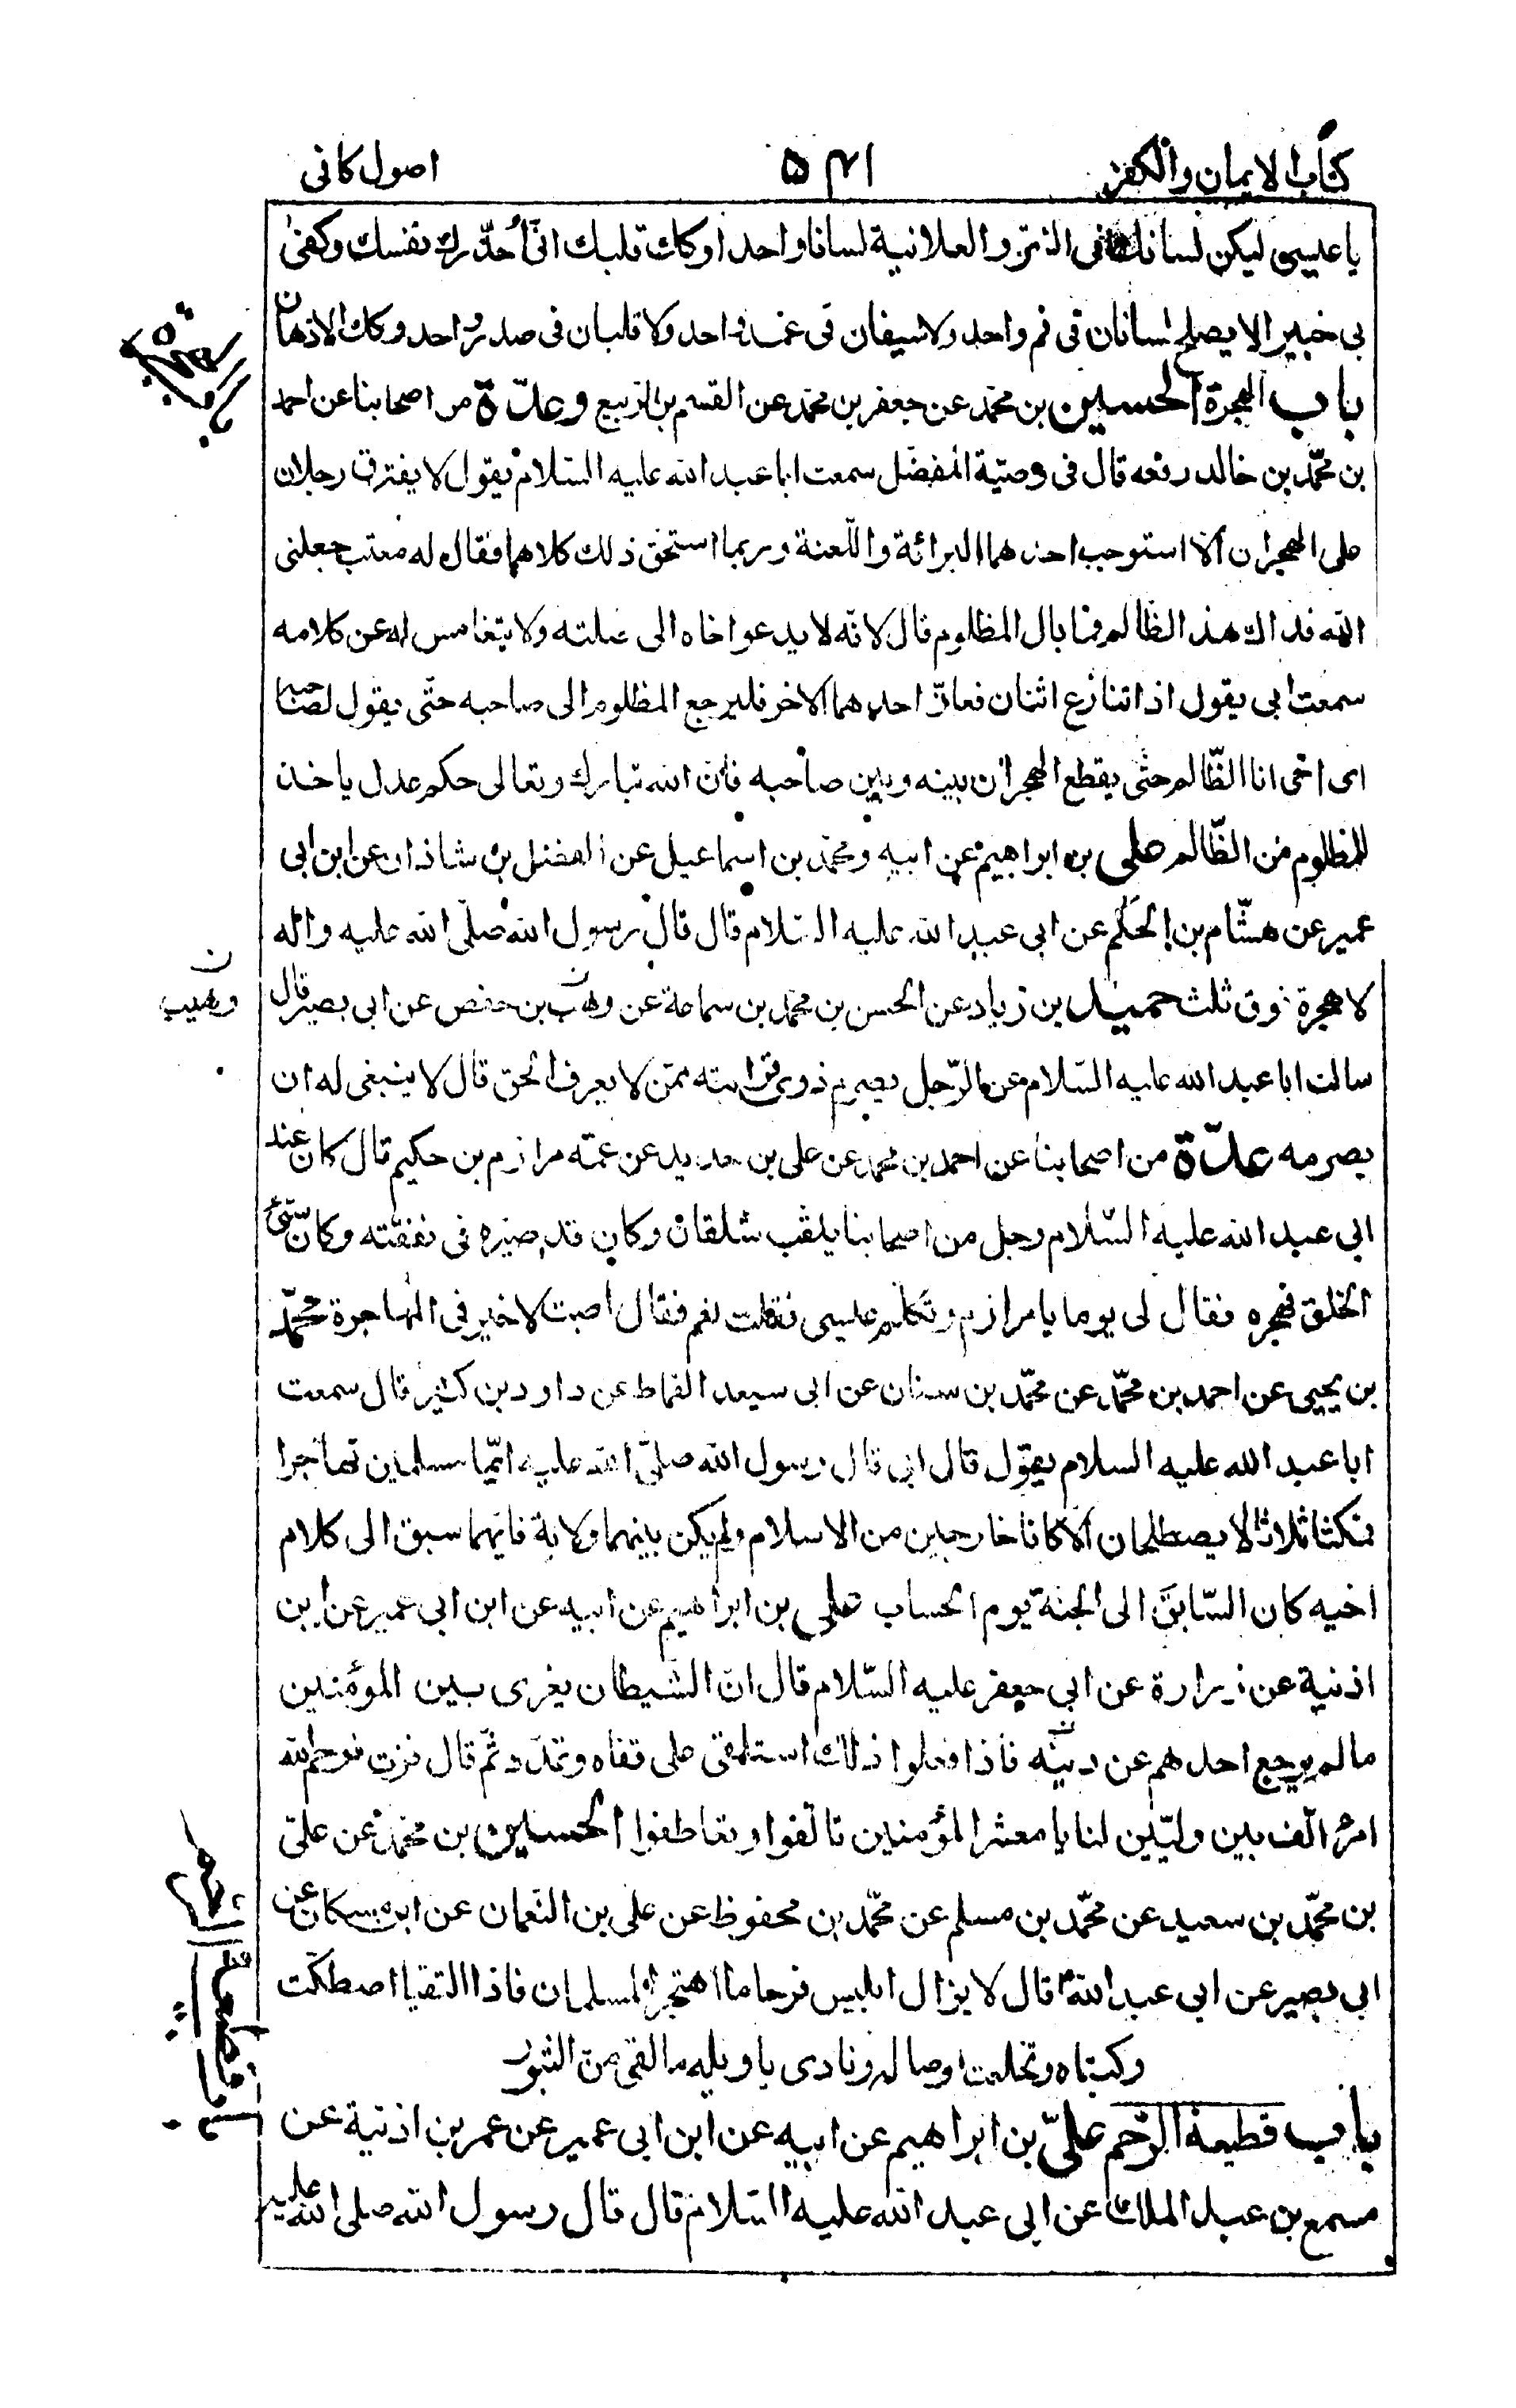 كتاب الايمان والكفر ۵۴۱ اصول كافى
يا عيسى ليكن لسانك فى السّرّ والعلانية لسانا واحدا وكك قلبك انّى أحذّرك نفسك وكفى
بى خبيرا لا يصلح لسانان فى فم واحد ولا سيفان فى غمد واحد ولا قلبان فى صدر واحد وكك الاذهان
باب الهجرة الحسين بن محمّد عن جعفر بن محمّد عن القسم بن الربيع وعدّة من اصحابنا عن احمد
بن محمّد بن خالد رفعه قال فى وصيّة المفضّل سمعت ابا عبد الله عليه السّلام يقول لا يفترق رجلان
على الهجران الّا استوجب احدهما البرائة واللّعنة وربما استحق ذلك كلاهما فقال له معتب جعلنى
الله فداك هذا الظّالم فما بال المظلوم قال لانّه لا يدعوا خاه الى صلته ولا يتغامس له عن كلامه
سمعت ابى يقول اذا تنازع اثنان فعازّ احدهما الاخر فليرجع المظلوم الى صاحبه حتّى يقول لصاحبه
اى اخى انا الظّالم حتّى يقطع الهجران بينه وبين صاحبه فانّ الله تبارك وتعالى حكم عدل ياخذ
للمظلوم من الظّالم على بن ابراهيم عن ابيه ومحمّد بن اسماعيل عن الفضل بن شاذان عن ابن ابى
عمير عن هشام بن الحكم عن ابى عبد الله عليه السّلام قال قال رسول الله صلّى الله عليه واله
لا هجرة فوق ثلث حميد بن زياد عن الحسن بن محمّد بن سماعة عن وهب بن حفص عن ابى بصير قال
سالت ابا عبد الله عليه السّلام عن الرّجل يصرم ذوى قرابته ممّن لا يعرف الحق قال لا ينبغى له ان
يصرمه عدّة من اصحابنا عن احمد بن محمد عن على بن حديد عن عمّه مرازم بن حكيم قال كان عند
ابى عبد الله عليه السّلام رجل من اصحابنا يلقّب شلقان وكان قد صيّره فى نفقته وكان سيّئ
الخلق فهجره فقال لى يوما يا مرازم وتكلّم عيسى فقلت نعم فقال اصبت لا خير فى المهاجرة محمّد
بن يحيى عن احمد بن محمّد عن محمّد بن سنان عن ابى سعيد القماط عن داود بن كثير قال سمعت
ابا عبد الله عليه السلام يقول قال ابى قال رسول الله صلّى الله عليه ايّما مسلمين تهاجرا
فمكثا ثلاثا لا يصطلحان الّا كانا خارجين من الاسلام ولم يكن بينهما ولاية فايّهما سبق الى كلام
اخيه كان السّابق الى الجنة يوم الحساب على بن ابراهيم عن ابيه عن ابن ابى عمير عن ابن
اذنية عن زرارة عن ابى جعفر عليه السّلام قال انّ الشّيطان يغرى بين المؤمنين
مالم يرجع احدهم عن دينه فاذا فعلوا ذلك استلقى على قفاه وتمدّد ثمّ قال فزت فرحم الله
امرءا الّف بين وليّين لنا يا معشر المؤمنين تالّفوا وتعاطفوا الحسين بن محمّد عن على
بن محمّد بن سعيد عن محمّد بن مسلم عن محمّد بن محفوظ عن على بن النّعمان عن ابن مسكان عن
ابى بصير عن ابى عبد الله قال لا يزال ابليس فرحا ما اهتجر المسلمان فاذا التقيا اصطكّت
ركبتاه وتخلعت اوصاله ونادى يا ويله ما لقى من الثبور
باب قطيعة الرّحم علىّ بن ابراهيم عن ابيه عن ابن ابى عمير عن عمر بن اذنية عن
مسمع بن عبد الملك عن ابى عبد الله عليه السّلام قال قال رسول الله صلى الله عليه
باب الهجرة
ن
وهيب
باب قطيعة الرحم